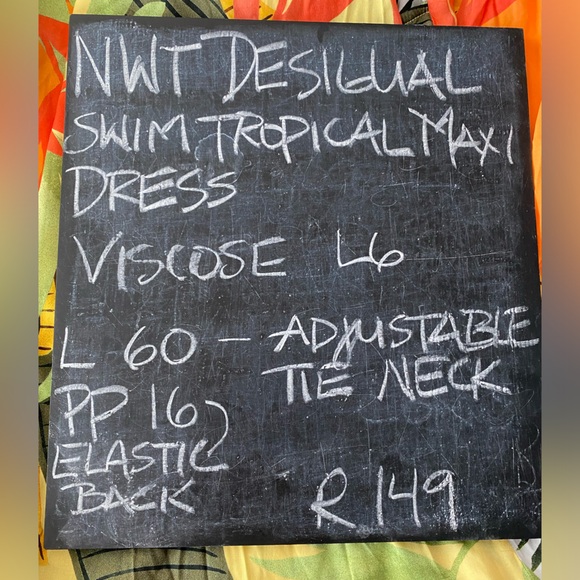 NWT DESIGUAL
SWIM TROPICAL MAXI
DRESS
VISCOSE L6
L 60 - ADJUSTABLE
TIE NECK
PP 16
ELASTIC
BACK
R 149